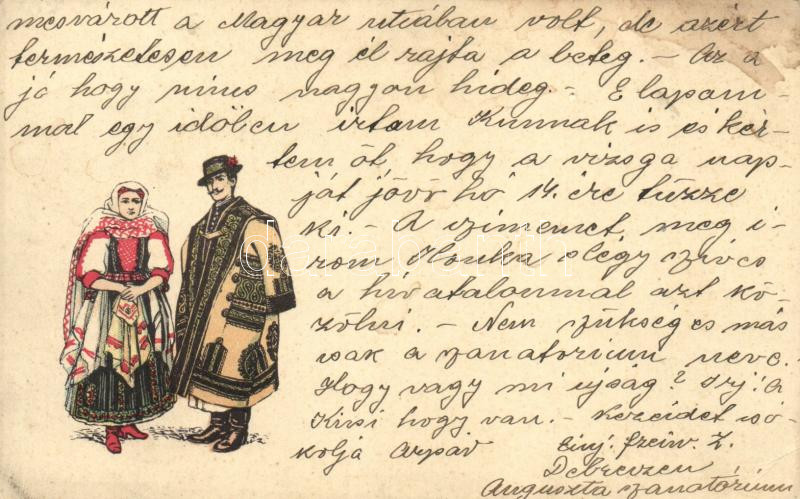 mesvárott a Magyar utcában volt, de azért
természetesen meg él rajta a beteg. – Az a
jó hogy nincs nagyon hideg. – E lapom-
mal egy időben irtam Kunnak is és kér-
tem őt, hogy a vizsga nap-
ját jövő hó 14. ére tűzze
ki. – A címemet meg i-
rom Ilonka légy szíves
a hivatalommal azt kö-
zölni. – Nem szükséges más
csak a szanatorium neve.
Hogy vagy mi ujság? Irj! A
Kinsi hogy van. – Kezeidet cso-
kolja Arpád
Debreczen
Auguszta szanatórium
darabanth.hu